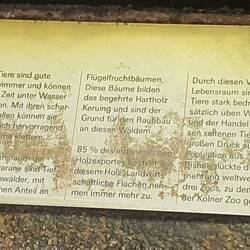 Tiere sind gute
wimmer und können
Zeit unter Wasser
Mit ihren schar-
ich hervorragend
ne klettern.
wälder, mit
nen Anteil an
Flügelfruchtbäumen,
Diese Bäume bilden
das begehrte Hartholz
Kerung und sind der
Grund für den Raubbau
an diesen Wäldern.
85 % des indonesischen
Holzexportes besteht aus
diesem Holz. Landwirt-
schaftliche Flächen neh-
men immer mehr zu.
Durch diesen V
Lebensraum sin
Tiere stark bedr
sätzlich üben W
und der Handel
sen seltenen Ti
großen Druck au
Population aus.
mehrung weltw
drei Zoos, zu de
der Kölner Zoo ge